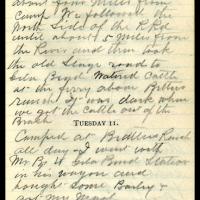 about four Miles from
Camp. We followed the
North Side of the RRd
until about 5 miles from
the River and then took
the old Stage road to
Gila Bend Watered Cattle
at the ferry above
ranch It was dark when
we got the cattle out of the
TUESDAY 11.
Camped at Ranch
all day - I went with
Mr B to Gila Bend Station
in his wagon and
bought Some Barley &
got my